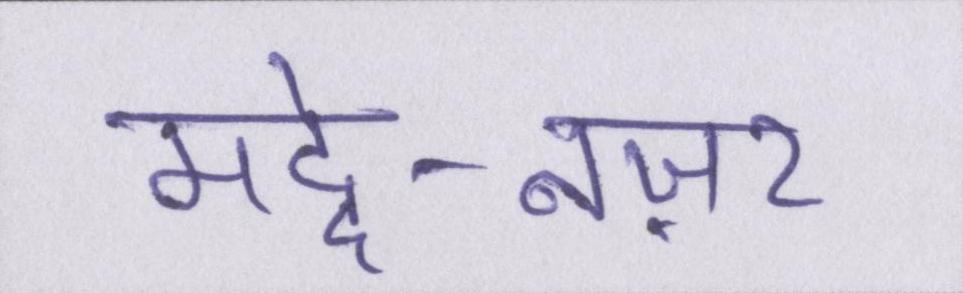 मद्दे-नज़र